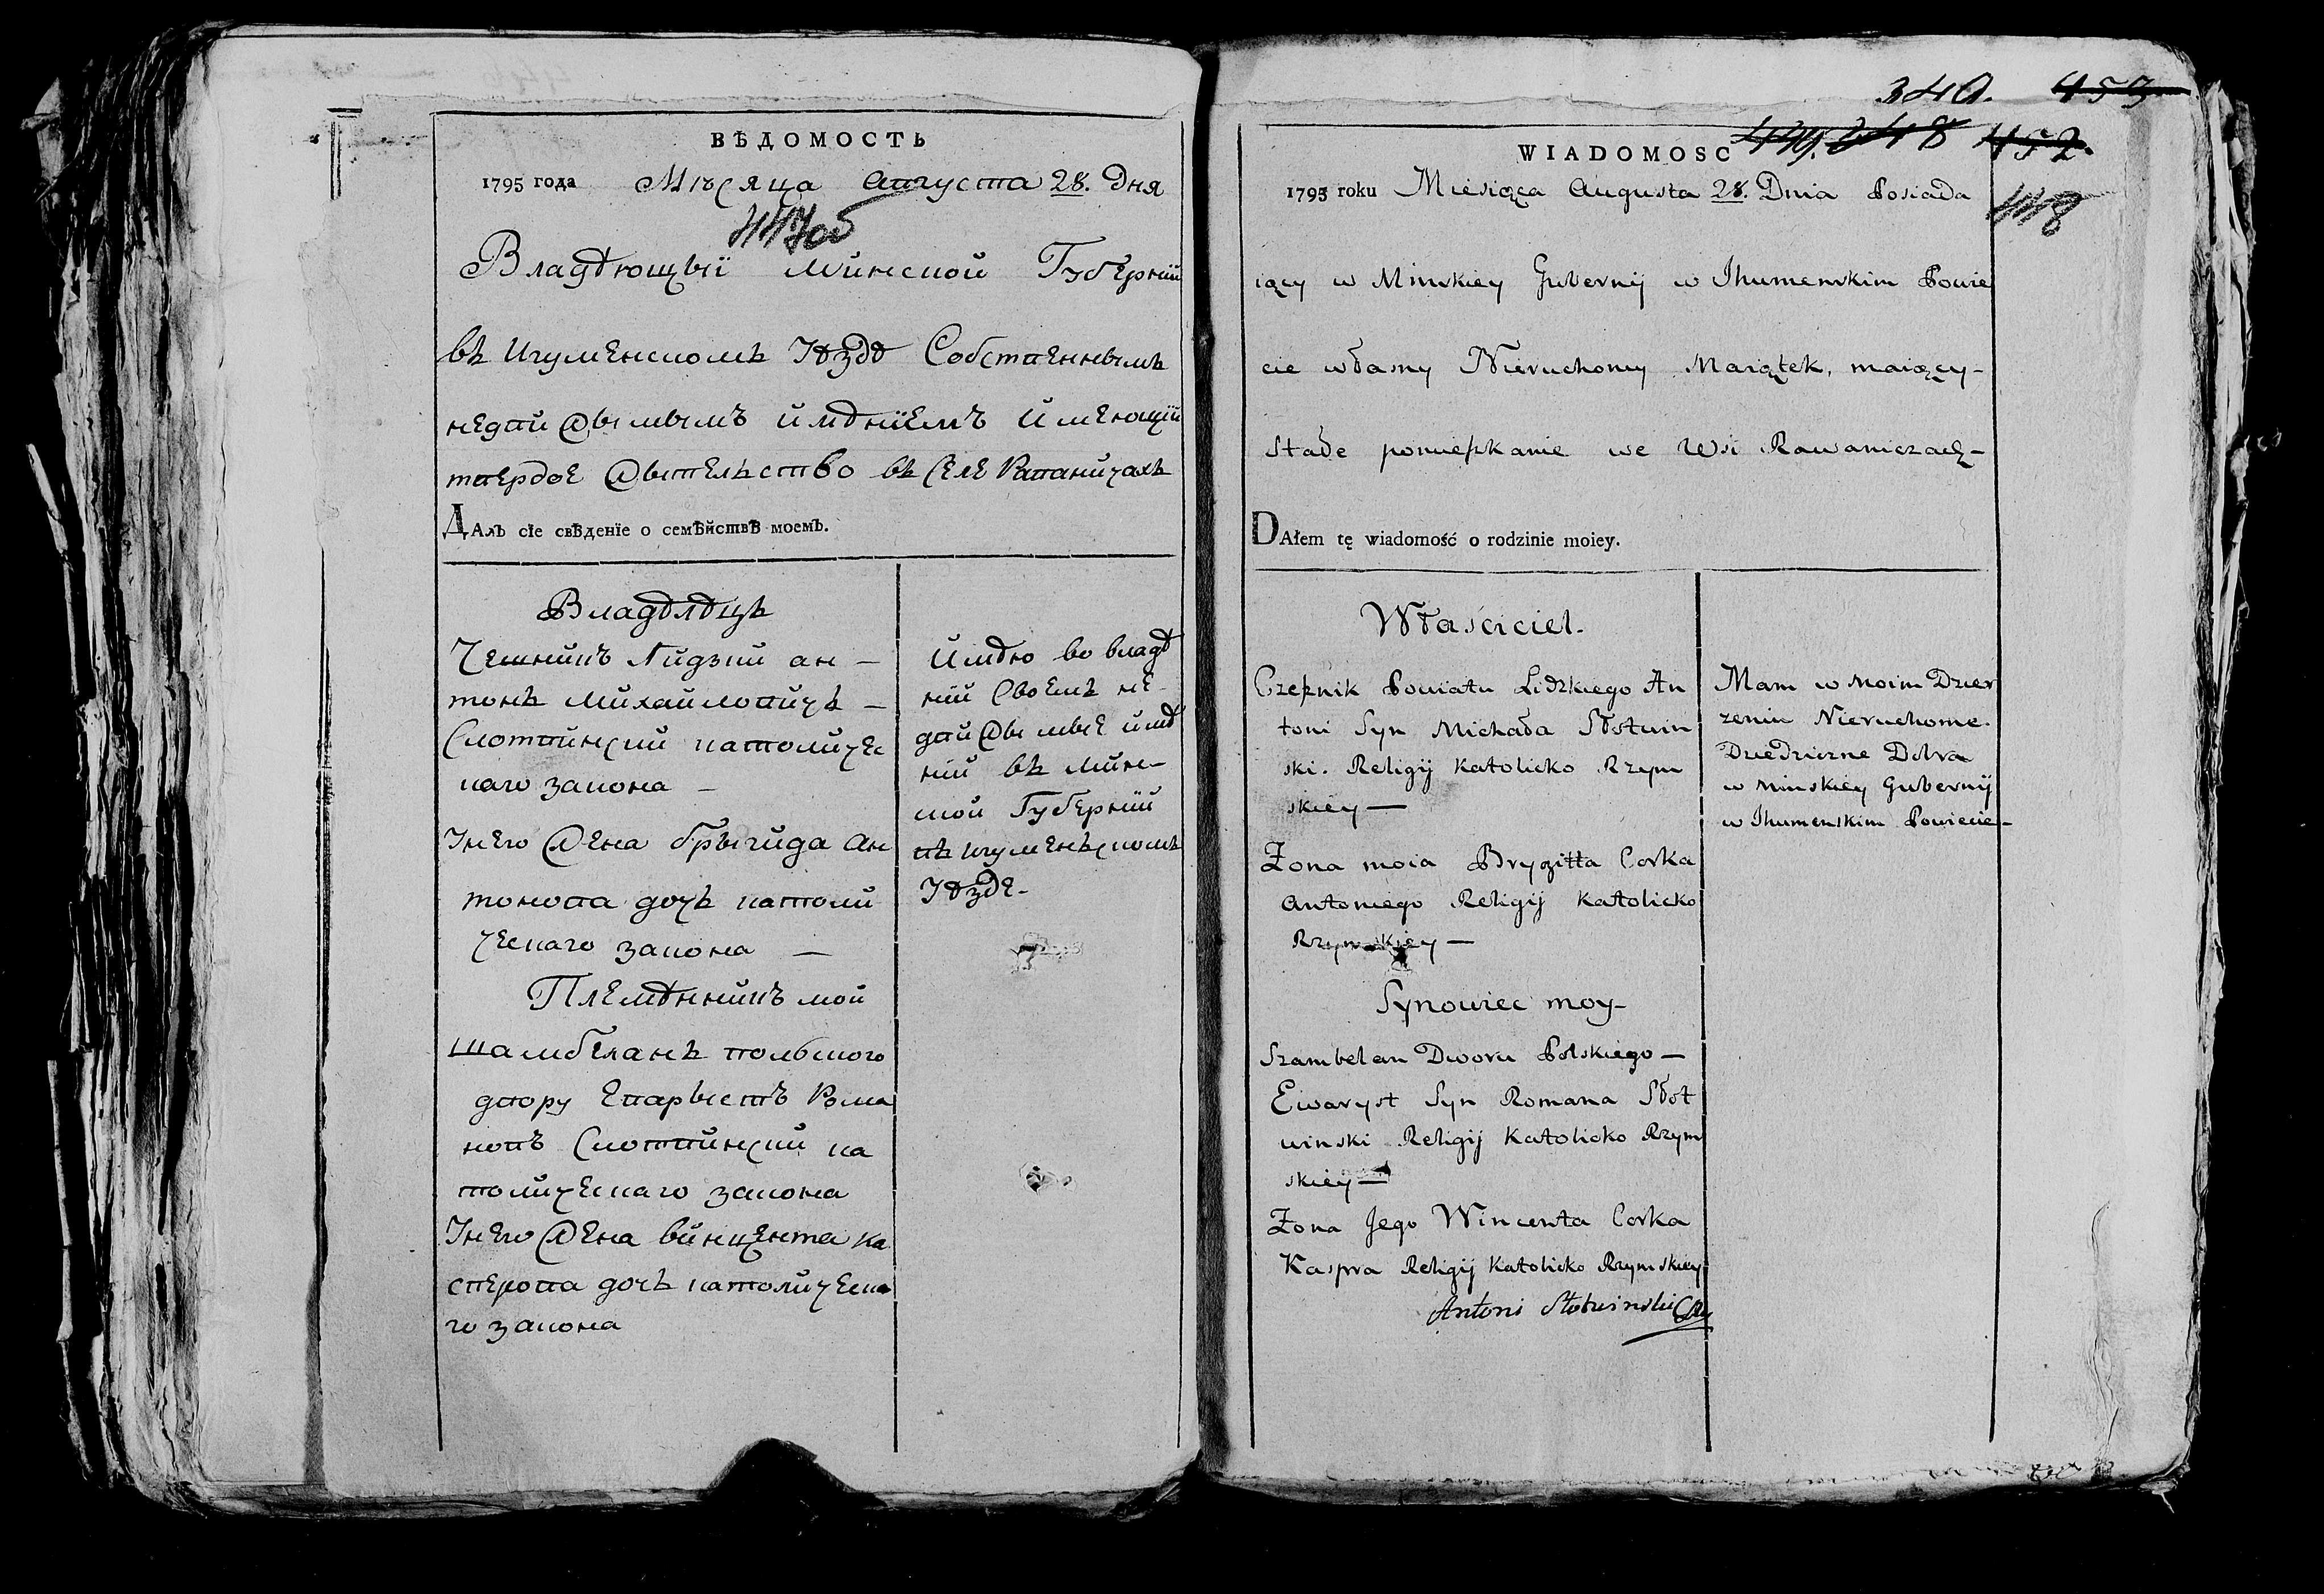 ВѢДОМОСТЬ
1795 года Мѣсяца Августа 28. Дня
447об
Владѣющыи минской Губернии
въ Игуменскомъ Уѣздѣ Собственнымъ
недвижымымъ имѣниемъ имеющии
твердое жытельство въ селе Раваничахъ
Далъ сїе свѣденїе о семѣйствѣ моемъ.
Владѣлѣцъ
Чешникъ Лидзкий Ан-
тонъ михайловичъ –
Слотвинский католичес
каго закона –
У него жена брыгида Ан
тонова дочь католи
ческаго закона –
Племѣнникъ мой
шамбеланъ польского
двору Еварыстъ Рома
новъ Слотвинский ка
толическаго закона
У него жена винцента Ка
сперова дочь католическа
го закона
Имѣю во владѣ
нии своемъ не-
движымые имѣ
нии въ мин-
ской Губернии
въ игуменьскомъ
Уѣзде-
340. 453
448 452.
WIADOMOSC
448
1795 roku Miesiąca Augusta 28. Dnia Posiada
iący w Minskiey Gubernij w Ihumenskim Powie
cie własny Nieruchomy Maiątek, maiący-
Stałe pomieszkanie we Wsi Rawaniczach-
Dałem tę wiadomość o rodzinie moiey.
Właściciel.
Czesznik Powiatu Lidzkiego An
toni Syn Michała Słotwin
ski. Religij Katolicko Rzym
skiey —
Żona moia Brygitta Corka
Antoniego Religij Katolicko
Rzymskiey —
Synowiec moy-
Szambelan Dworu Polskiego —
Ewaryst Syn Romana Słot
winski Religij Katolicko Rzym
skiey —
Żona Jego Wincenta Corka
Kaspra Religij Katolicko Rzymskiey
Antoni Słotwinski
Mam w Moim Dzier
żeniu Nieruchome.
Dziedziczne Dobra
w Minskiey Gubernij
w Ihumenskim Powiecie-